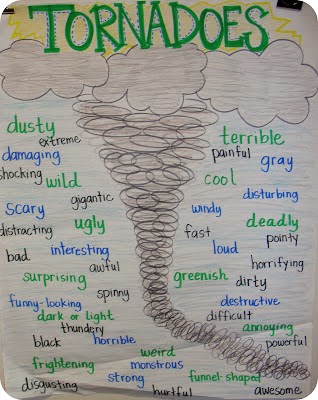 TORNADOES
dusty
extreme
terrible
damaging
painful
gray
shocking
wild
cool
gigantic
disturbing
scary
windy
distracting
ugly
fast
deadly
pointy
bad
interesting
loud
awful
horrifying
surprising
greenish
dirty
spinny
funny-looking
destructive
dark or light
difficult
thundery
annoying
black
horrible
powerful
weird
frightening
monstrous
strong
funnel-shaped
disgusting
hurtful
awesome